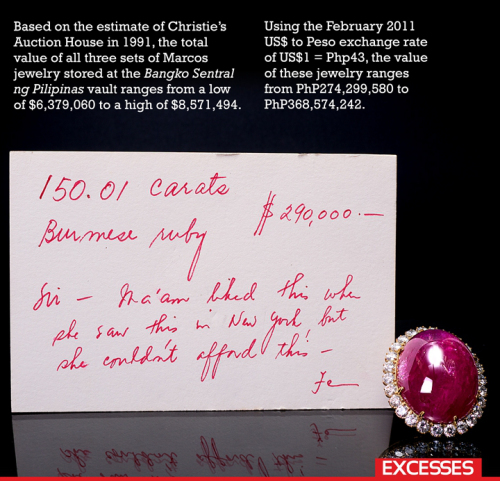 Based on the estimate of Christie's
Auction House in 1991, the total
value of all three sets of Marcos
jewelry stored at the Bangko Sentral
ng Pilipinas vault ranges from a low
of $6,379,060 to a high of $8,571,494.
Using the February 2011
US$ to Peso exchange rate
of US$1 = Php43, the value
of these jewelry ranges
from PhP274,299,580 to
PhP368,574,242.
150.01 carats
$290,000.—
Burmese ruby
Sir – Ma'am liked this when
she saw this in New York, but
she couldn't afford this –
Fe
EXCESSES